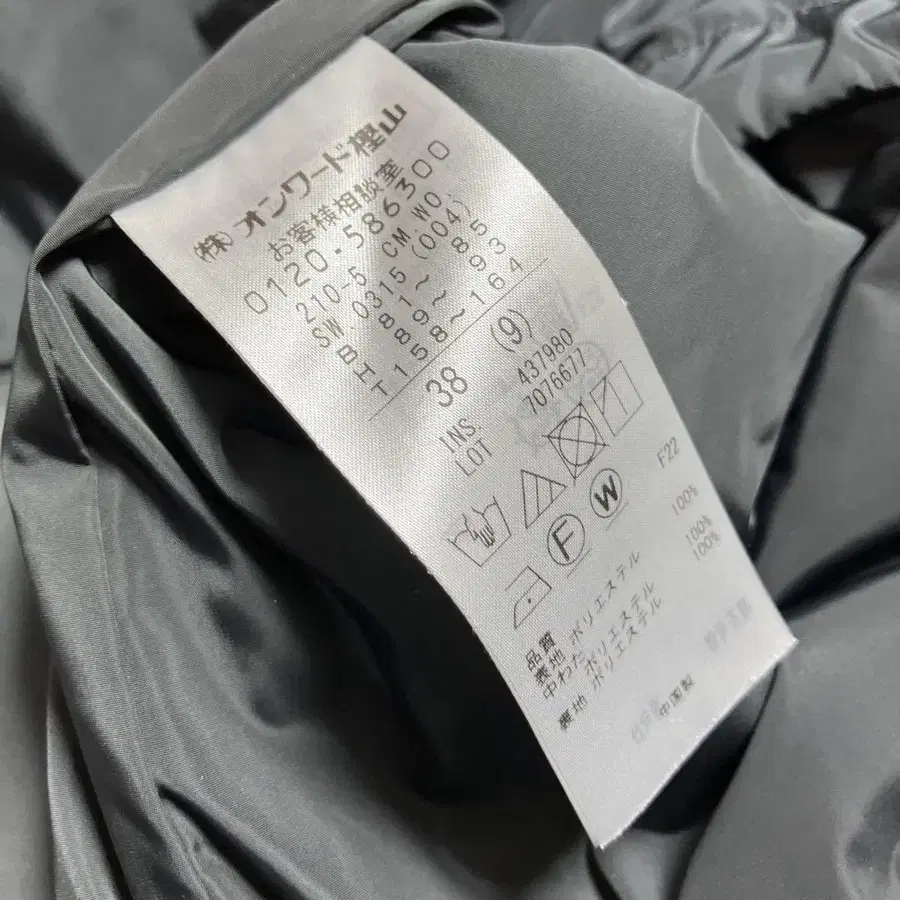 (株)オンワード樫山
お客様相談室
0120-586300
210-5 CM.WO.
SW.0315(004)
B 81～ 85
H 89～ 93
T 158～164
38 (9)
INS. 437980
LOT 7076677
F22
F W
品質
表地 ポリエステル 100%
中わた ポリエステル 100%
裏地 ポリエステル 100%
中国製